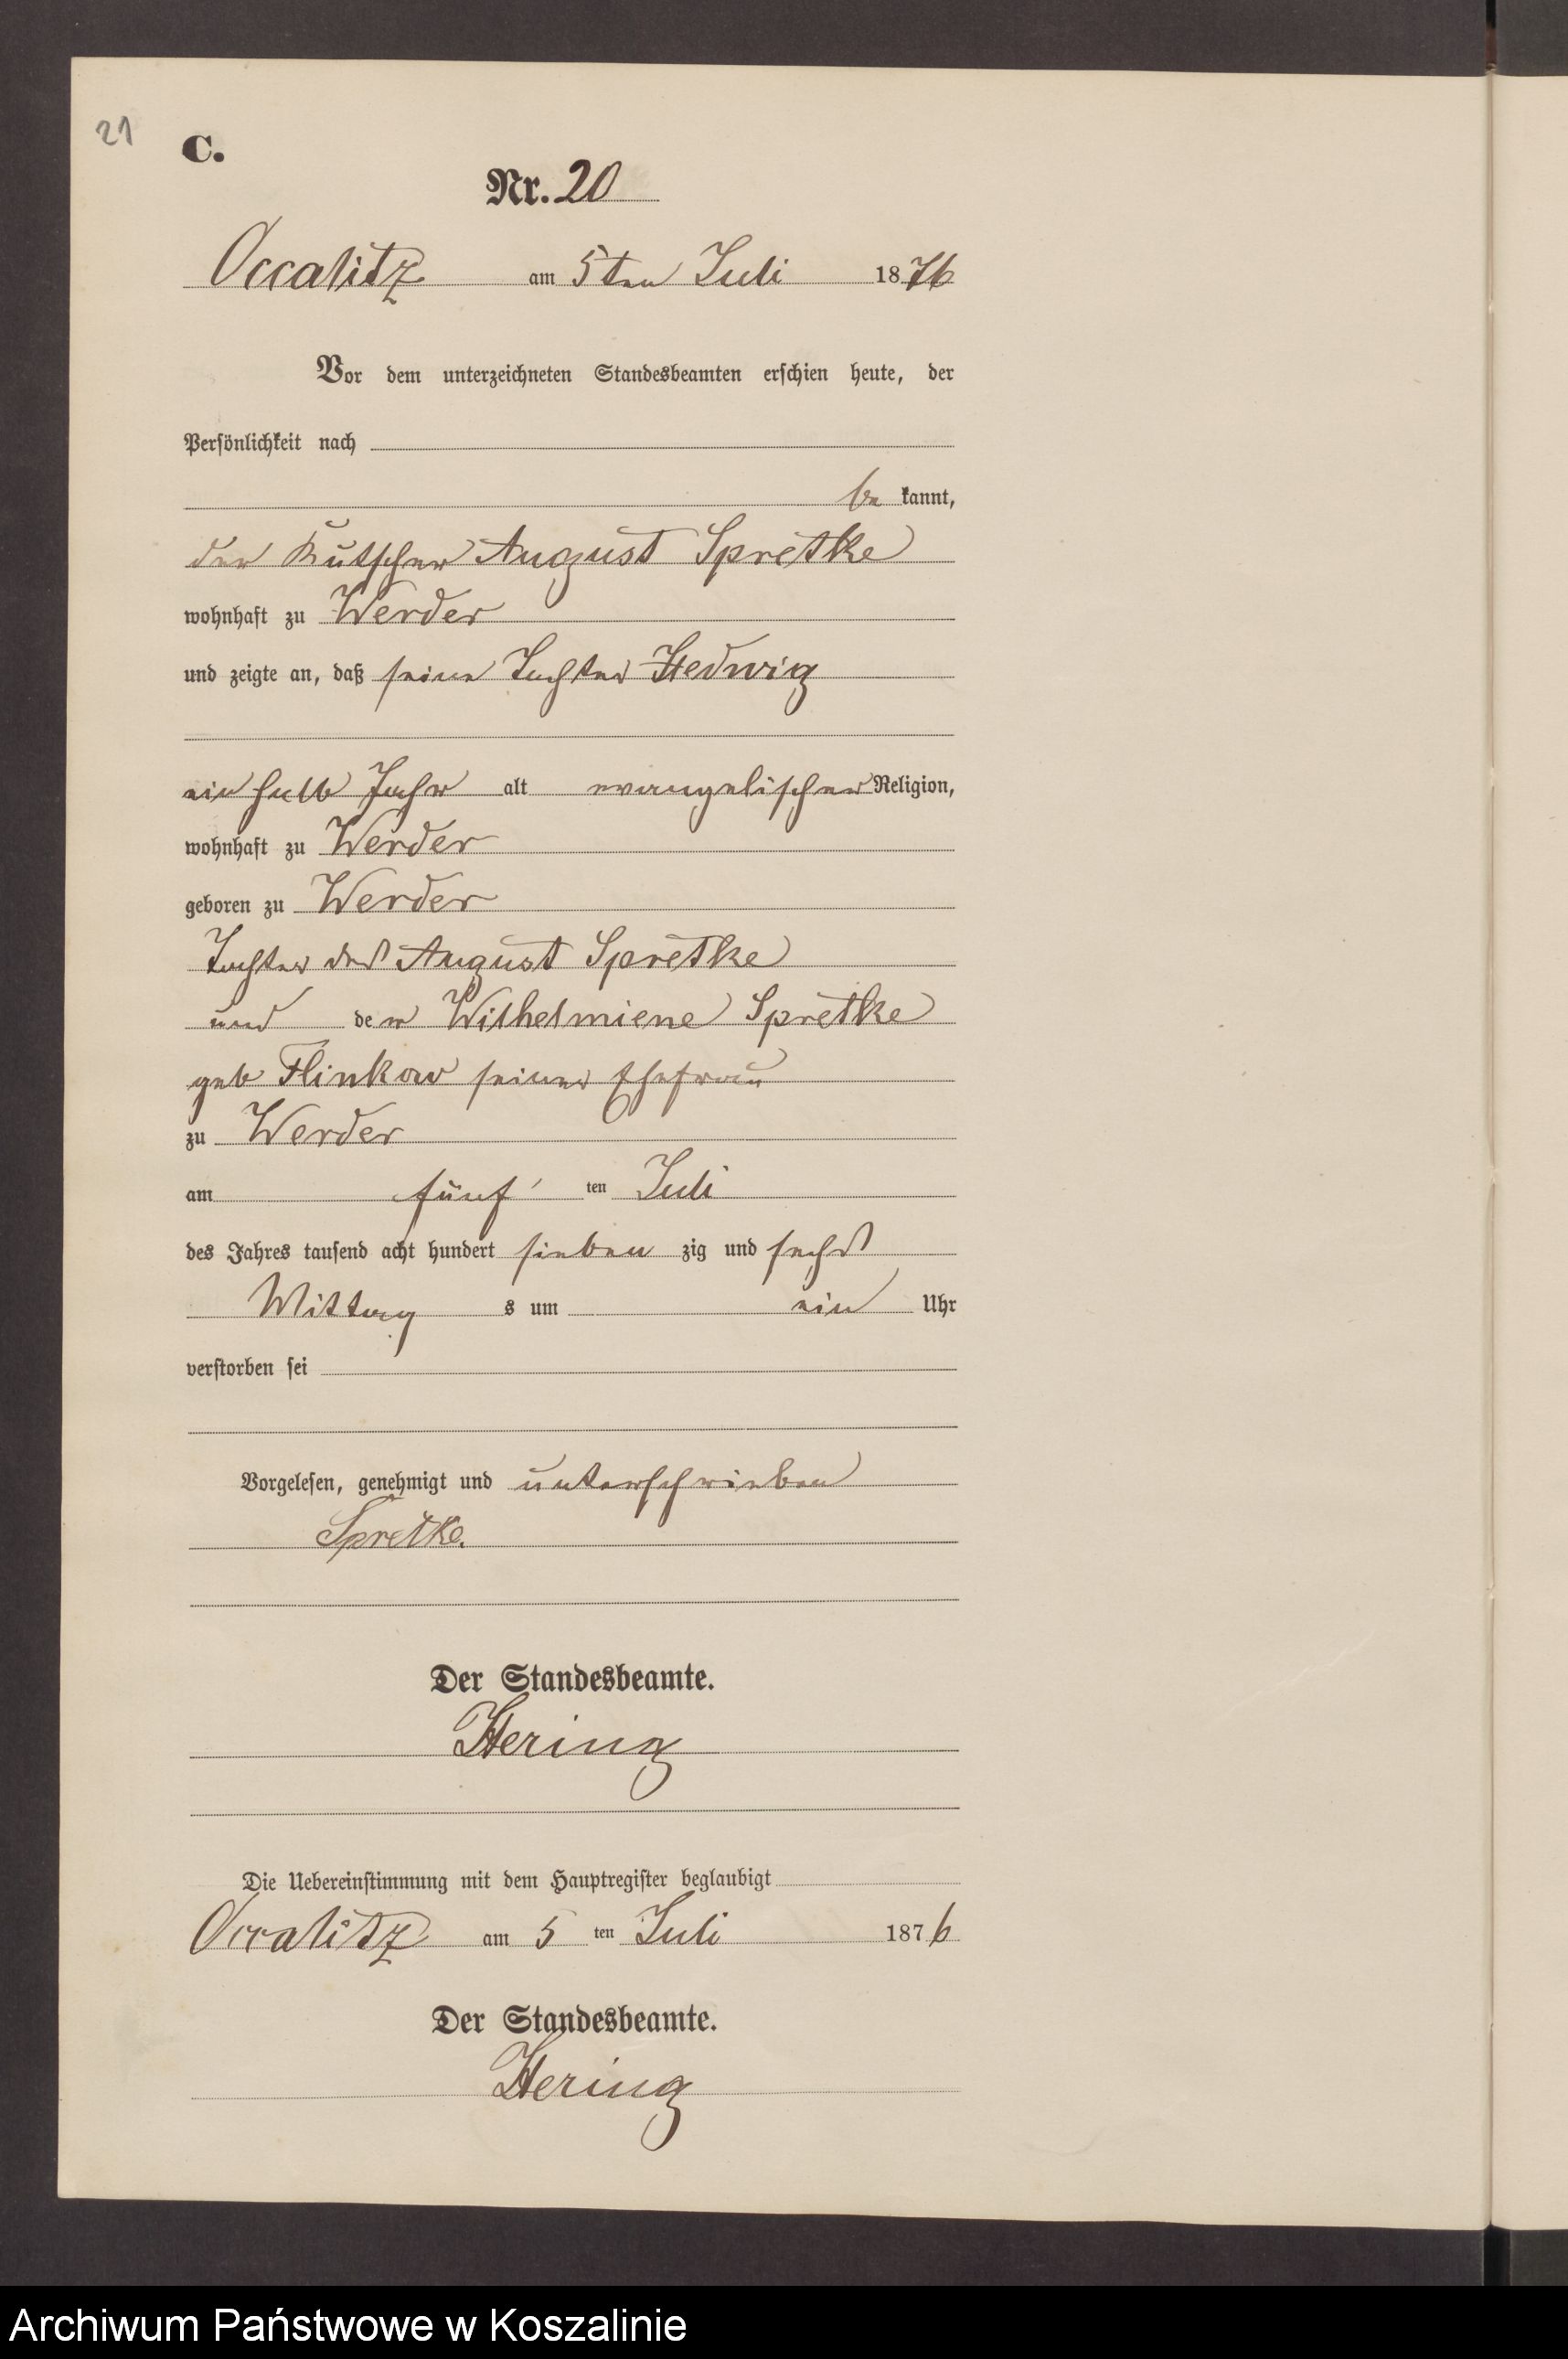 21
C.
Nr. 20
Occalitz am 5ten Juli 1876
Vor dem unterzeichneten Standesbeamten erschien heute, der
Persönlichkeit nach
be kannt,
der Kutscher August Spretke
wohnhaft zu Werder
und zeigte an, daß seine Tochter Hedwig
ein halb Jahr alt evangelischer Religion,
wohnhaft zu Werder
geboren zu Werder
Tochter des August Spretke
und der Wilhelmiene Spretke
geb Flinkow seiner Ehefrau
zu Werder
am fünf ten Juli
des Jahres tausend acht hundert sieben zig und sechs
Mittag s um ein Uhr
verstorben sei
Vorgelesen, genehmigt und unterschrieben
Spretke.
Der Standesbeamte.
Hering
Die Uebereinstimmung mit dem Hauptregister beglaubigt
Occalitz am 5 ten Juli 1876
Der Standesbeamte.
Hering
Archiwum Państwowe w Koszalinie